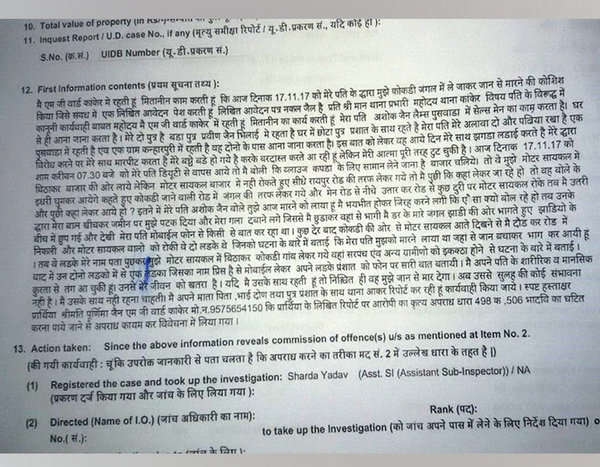 10. Total value of property (In Rs/)
11. Inquest Report / U.D. case No., if any (मृत्यु समीक्षा रिपोर्ट / यू.डी.प्रकरण सं., यदि कोई हो ):
S.No. (क्र.सं.) UIDB Number (यू.डी.प्रकरण सं.)
12. First Information contents (प्रथम सूचना तथ्य ):
मै एम जी वार्ड कांकेर में रहती हूं मितानीन काम करती हूं कि आज दिनाक 17.11.17 को मेरे पति के द्वारा मुझे कोकडी जंगल में ले जाकर जान से मारने की कोशिश
किया जिसे सवध मे एक लिखित आवेदन पेश करती हूं लिखित आवेदन पत्र नकल जैल है प्रति श्री मान थाना प्रभारी महोदय थाना कांकेर विषय पति के विरूद्ध में
कानूनी कार्यवाही वावत महोदय मै एम जी वार्ड कांकेर में रहती हूं मितानीन का कार्य करती हूं मेरा पति अशोक जैन लैम्स पुसवाडा में सेल्स मेन का काम करता है। घर
से ही आना जाना करता है। मेरे दो पुत्र है बडा पुत्र प्रवीण जैन भिलाई मे रहता है घर में छोटा पुत्र प्रशात के साथ रहते है मेरा पति मेरे अलावा दो और पत्निया रखा है एक
पुसवाडा में रहती है एव एक ग्राम कन्हारपुरी में रहती है वह दोनो के पास आना जाना करता है। इस बात को लेकर वह आये दिन मेरे साथ झगडा लडाई करते है मेरे द्वारा
विरोध करने पर मेरे साथ मारपीट करता है मेरे बच्चे बडे हो गये है करके बरदास्त करते आ रही हूं लेकिन मेरी आत्मा पूरी तरह टूट चुकी है। आज दिनाक 17.11.17 को
शाम करीबन 07.30 बजे मेरे पति डियुटी से वापस आये तो मै बोली कि ब्लाउज कपडा के लिए सामान लेने जाना है बाजार चलिये। तो वे मुझे मोटर सायकल मे
बिठाकर बाजार की ओर लाये लेकिन मोटर सायकल बाजार में नही रोकते हुए सीधे रायपुर रोड की तरफ लेकर गये तो मै पुछी कि कहा लेकर जा रहे हो तो वह बोले के
इधरी घुमकर आयेगे कहते हुए कोकडी जाने वाली रोड में जंगल की तरफ लेकर गये और मेन रोड से नीचे उतार कर रोड से कुछ दुरी पर मोटर सायकल रोके तब मै उतरी
और पुछी कहा लेकर आये हो ? इतने में मेरे पति अशोक जैन बोले तुझे आज मारने को लाया हूं मै भयभीत होकर जिरह करने लगी कि एसा क्यो बोल रहे हो तब उनके
द्वारा मेरा बाल खीचकर जमीन पर मुझे पटक दिया और मेरा गला दबाने लगे जिससे मै छुडाकर वहां से भागी मै डर के मारे जंगल झाडी की ओर भागते हुए झाडियो के
बीच में छुप गई और देखी मेरा पति मोबाईल फोन से किसी से बात कर रहा था। कुछ देर बाद कोकडी की ओर से मोटर सायकल आते दिखने से मै दौड कर रोड में
निकली और मोटर सायकल वालो को रोकी वे दो लडके थे जिनको घटना के बारे में बताई कि मेरा पति मुझको मारने लाया था जहां से जान बचाकर भाग कर आयी हूं
। तब वे लडके मेरे नाम पता पुछकर मुझे मोटर सायकल में बिठाकर कोकडी गांव लेकर गये वहां सरपंच एंव अन्य ग्रामीणो को इकठठा होने से घटना के बारे में बताई ।
बाद में उन दोनो लडको में से एक लडका जिसका नाम प्रिंस है से मोबाईल लेकर अपने लडके प्रशात को फोन पर सारी बात बतायी। मै अपने पति के शारीरिक व मानसिक
क्रुरता से तग आ चुकी हूं। उनसे मेरे जीवन को खतरा है। यदि मै उसके साथ रहती हूं तो निश्चित ही वह मुझे जान से मार देगा। अब उससे सुलह की कोई संभावना
नही है। मै उसके साथ नही रहना चाहती। मै अपने माता पिता ,भाई दोण तथा पुत्र प्रशात के साथ थाना आकर रिपोर्ट कर रही हूं कार्यवाही किया जाये। स्पष्ट हस्ताक्षर
प्रार्थिया श्रीमति पूर्णिमा जैन एम जी वार्ड कांकेर मो.न.9575654150 कि प्रार्थिया के लिखित रिपोर्ट पर आरोपी का कृत्य अपराध धारा 498 क ,506 भादवि का घटित
करना पाये जाने से अपराध कायम कर विवेचना में लिया गया ।
13. Action taken: Since the above information reveals commission of offence(s) u/s as mentioned at Item No. 2.
(की गयी कार्यवाही : चूंकि उपरोक्त जानकारी से पता चलता है कि अपराध करने का तरीका मद सं. 2 में उल्लेख धारा के तहत है |)
(1) Registered the case and took up the investigation: Sharda Yadav (Asst. SI (Assistant Sub-Inspector)) / NA
(प्रकरण दर्ज किया गया और जांच के लिए लिया गया ):
Rank (पद):
(2) Directed (Name of I.O.) (जांच अधिकारी का नाम):
No.( सं.): to take up the Investigation (को जांच अपने पास में लेने के लिए निर्देश दिया गया) o